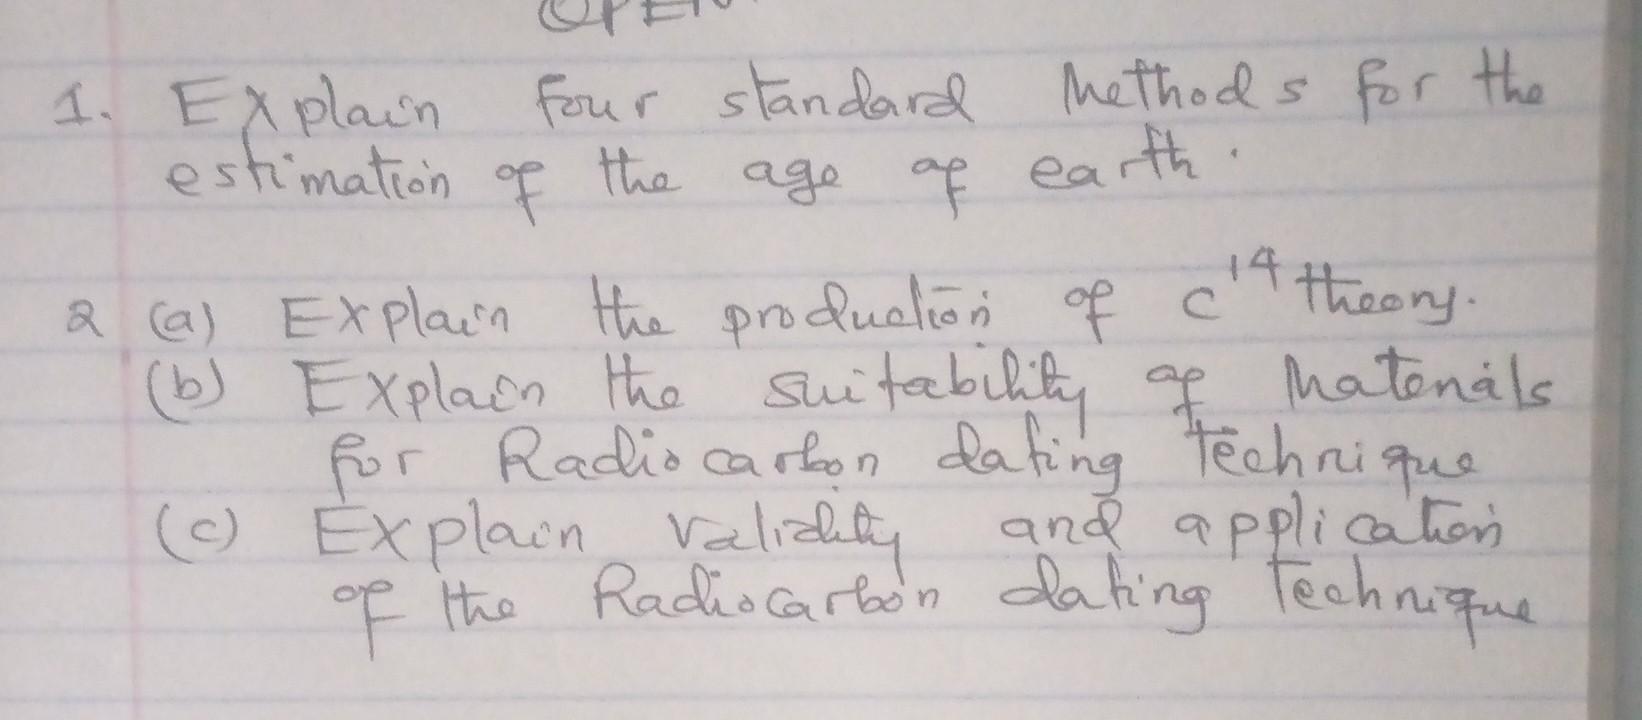 OPEN
1. Explain four standard Methods for the
estimation of the age of earth.
2 (a) Explain the production of C¹⁴ theory.
(b) Explain the suitability of Materials
for Radiocarbon dating Technique
(c) Explain validity and application
of the Radiocarbon dating Technique